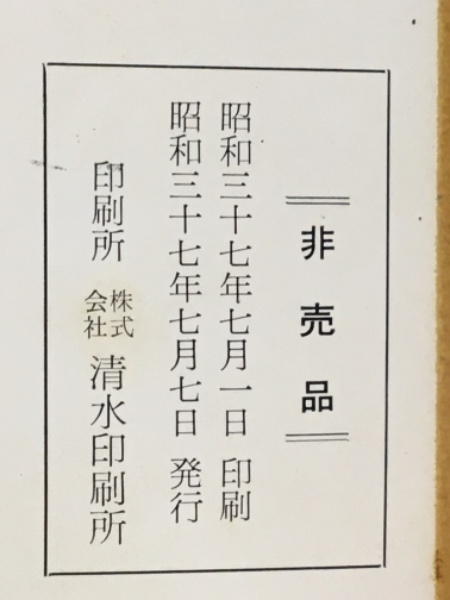 非売品
昭和三十七年七月一日 印刷
昭和三十七年七月七日 発行
印刷所 株式会社 清水印刷所